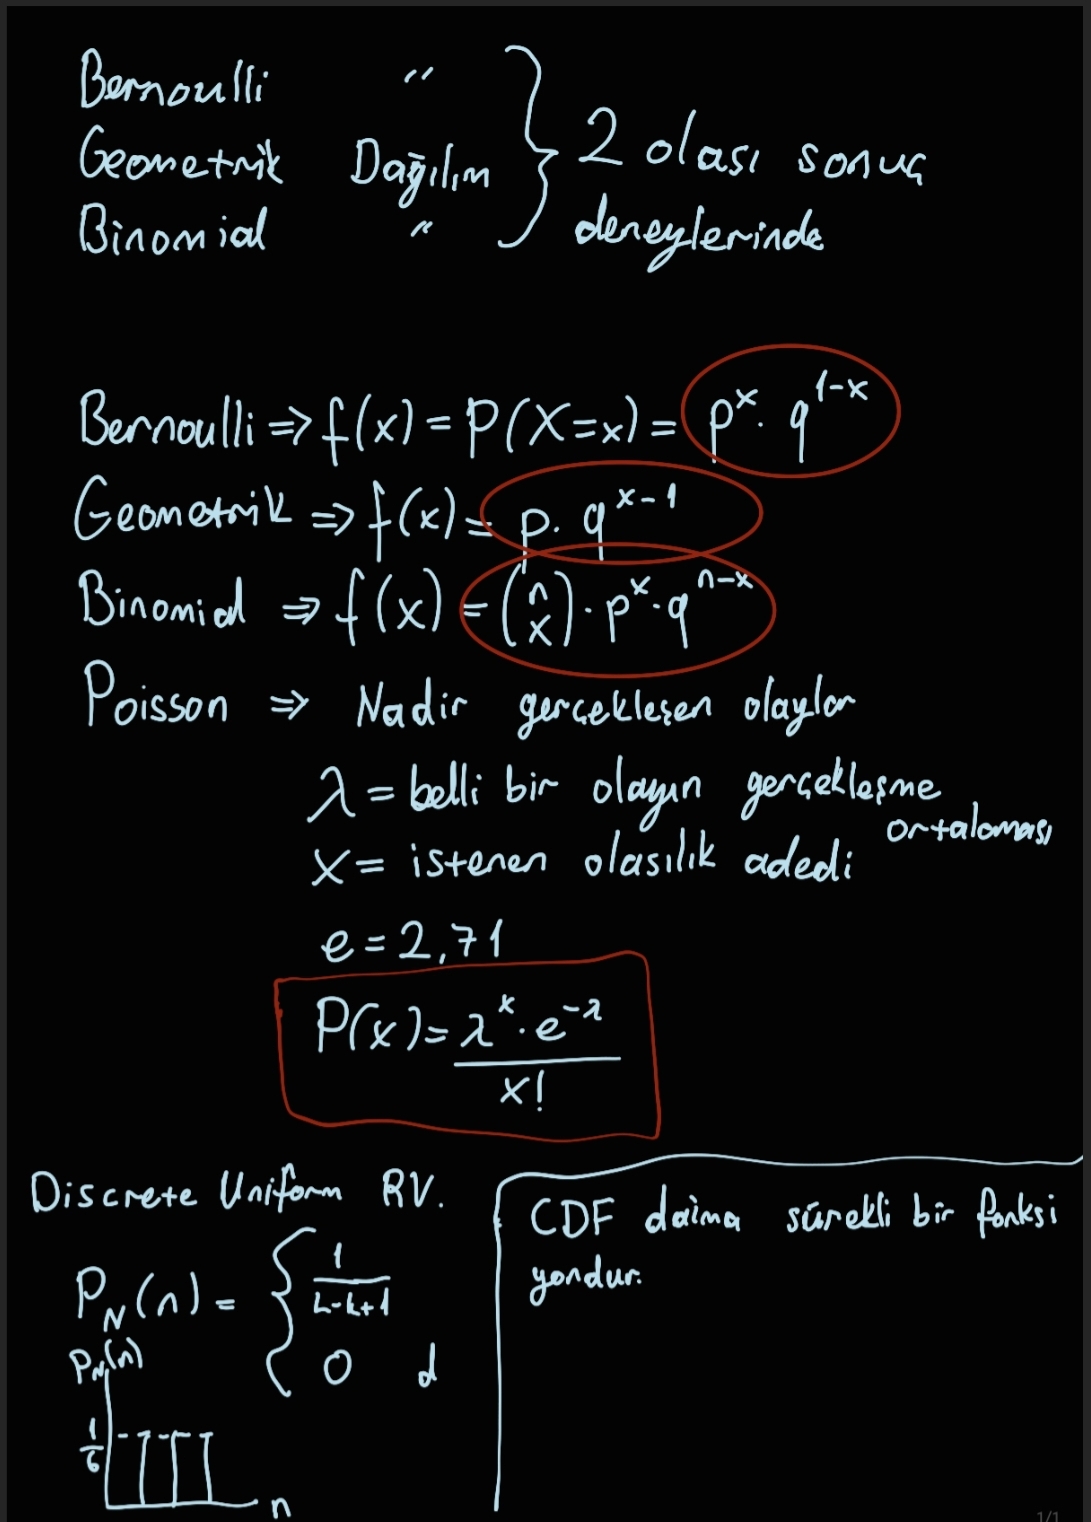 Bernoulli "
Geometrik Dağılım } 2 olası sonuç
Binomial " deneylerinde
Bernoulli ⇒ f(x) = P(X=x) = p^x · q^(1-x)
Geometrik ⇒ f(x) = p · q^(x-1)
Binomial ⇒ f(x) = (n x) · p^x · q^(n-x)
Poisson ⇒ Nadir gerçekleşen olaylar
λ = belli bir olayın gerçekleşme
ortalaması
x = istenen olasılık adedi
e = 2,71
P(x) = λ^x · e^-λ / x!
Discrete Uniform RV.
P_N(n) = { 1/(L-k+1)
0 d
P_N(n)
1/6
n
CDF daima sürekli bir fonksi
yondur.
1/1